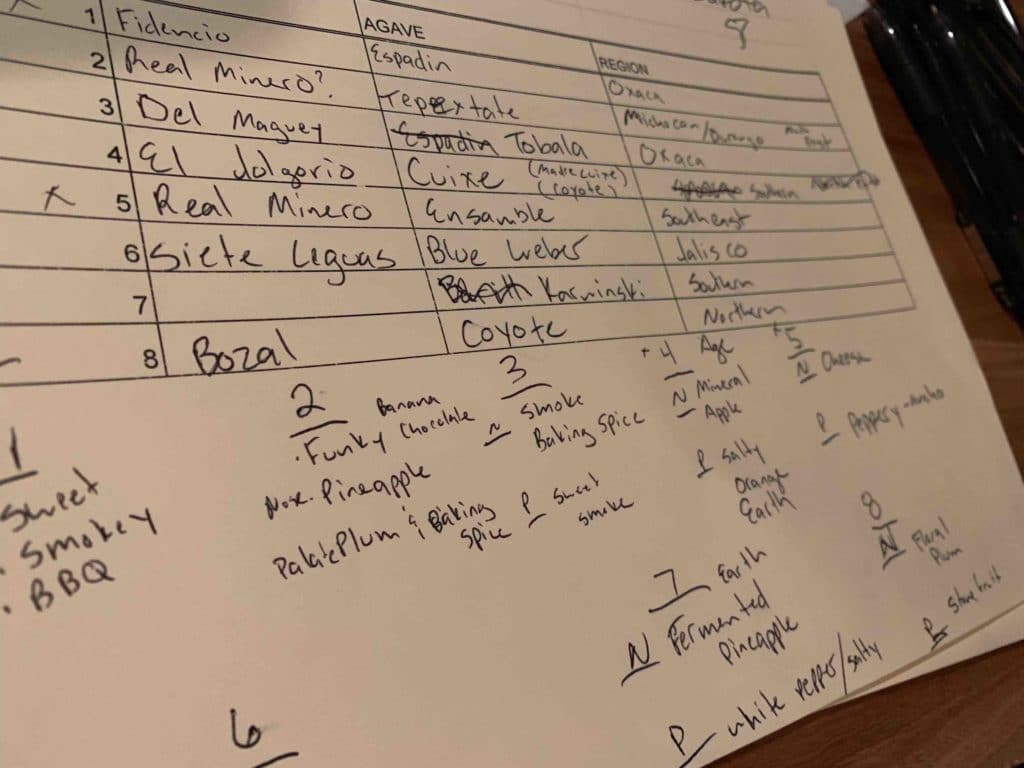 AGAVE
REGION
1 Fidencio Espadin Oxaca
2 Real Minero? Tepextate Michocan/Durango
3 Del Maguey Espadin Tobala Oxaca
4 El Jolgorio Cuixe (Madrecuixe) (Coyote) Southern
X 5 Real Minero Ensamble Southeast
6 Siete Leguas Blue Weber Jalisco
7 Karwinski Southern
8 Bozal Coyote Northern
9
1
Sweet
· Smokey
· BBQ
2
Banana
· Funky Chocolate
Nose. Pineapple
Palate Plum & Baking
Spice
3
N Smoke
Baking Spice
P Sweet
smoke
+ 4 Age
N Mineral
N Apple
P Salty
Orange
Earth
+5
N Cheese
P Peppery-
6
7 Earth
N Fermented
Pineapple
P white pepper/salty
8
N Floral
Rum
P Stonefruit